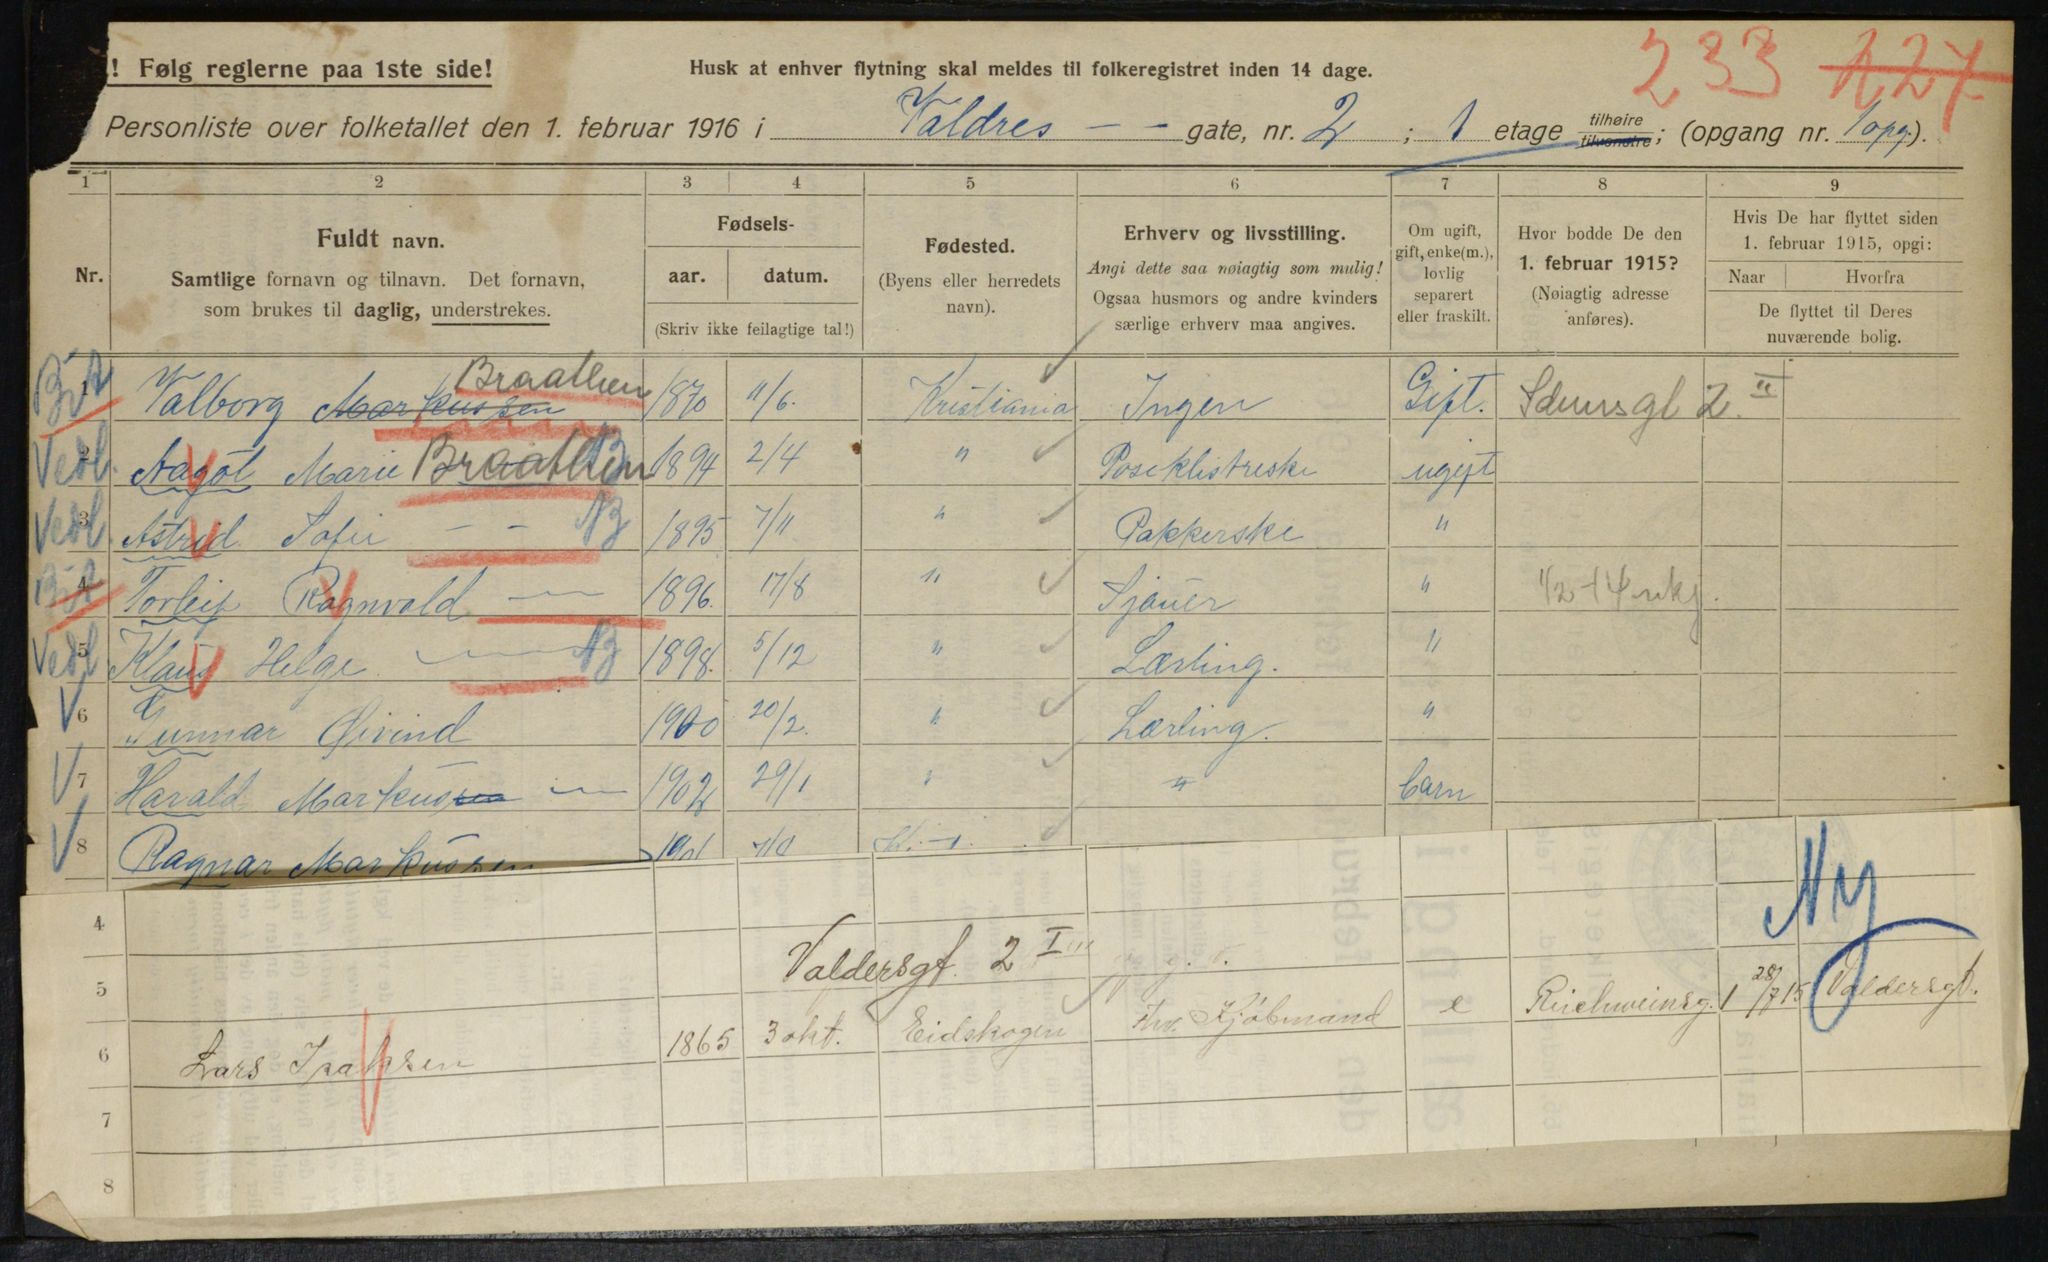 ! Følg reglerne paa 1ste side!
Husk at enhver flytning skal meldes til folkeregistret inden 14 dage.
233 127
Personliste over folketallet den 1. februar 1916 i Valdres - - gate, nr. 2 ; 1 etage tilhøire tilvenstre; (opgang nr. 1 opg.).
1 2 3 4 5 6 7 8 9
Nr.
Fuldt navn.
Samtlige fornavn og tilnavn. Det fornavn,
som brukes til daglig, understrekes.
Fødsels-
aar. datum.
(Skriv ikke feilagtige tal!)
Fødested.
(Byens eller herredets
navn).
Erhverv og livsstilling.
Angi dette saa nøiagtig som mulig!
Ogsaa husmors og andre kvinders
særlige erhverv maa angives.
Om ugift,
gift, enke(m.),
lovlig
separert
eller fraskilt.
Hvor bodde De den
1. februar 1915?
(Nøiagtig adresse
anføres).
Hvis De har flyttet siden
1. februar 1915, opgi:
Naar Hvorfra
De flyttet til Deres
nuværende bolig.
1 Valborg Markussen Braathen 1870 11/6. Kristiania Ingen Gift. 2 II
Vedl. 2 Aagot Marie Braathen 1894 2/4 " Poseklistreske ugift
Vedl. 3 Astrid Sofie - - 1895 7/11 " Pakkerske "
4 Torleif Ragnvald — 1896. 17/8 " Sjauer "
Vedl 5 Klaus Helge — 1898. 5/12 " Lærling. "
V 6 Gunnar Øivind 1900 20/2. " Lærling. "
V 7 Harald Markussen — 1902 29/1 " " barn
V 8 Ragnar Markussen
Ny
4
Valdersgt. 2 I
5
6 Lars Isaksen 1865 3 okt. Eidskogen fhv. Kjøbmand e Reichweinsg. 1 28/7 15 Valdersgt.
7
8